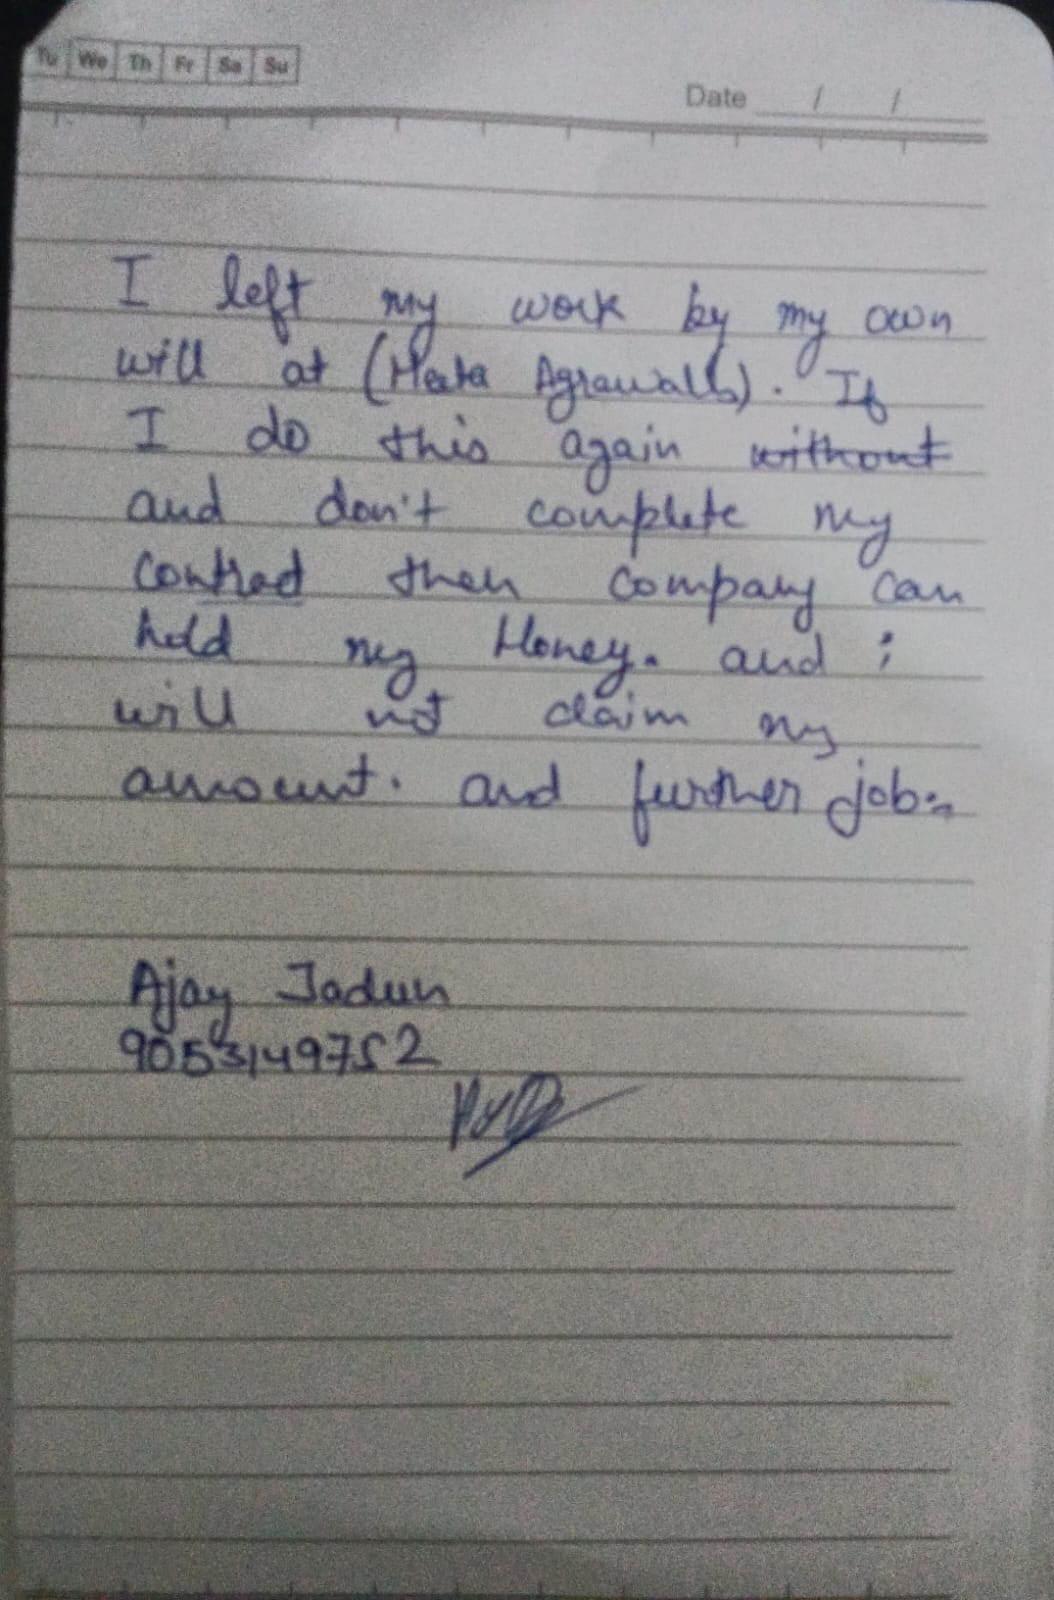 Tu We Th Fr Sa Su
Date / /
I left my work by my own
will at (Agrawalls). If
I do this again without
and don't complete my
contract then company can
hold my Money. and i
will not claim my
amount. and further job.
Ajay Jadun
9053149752